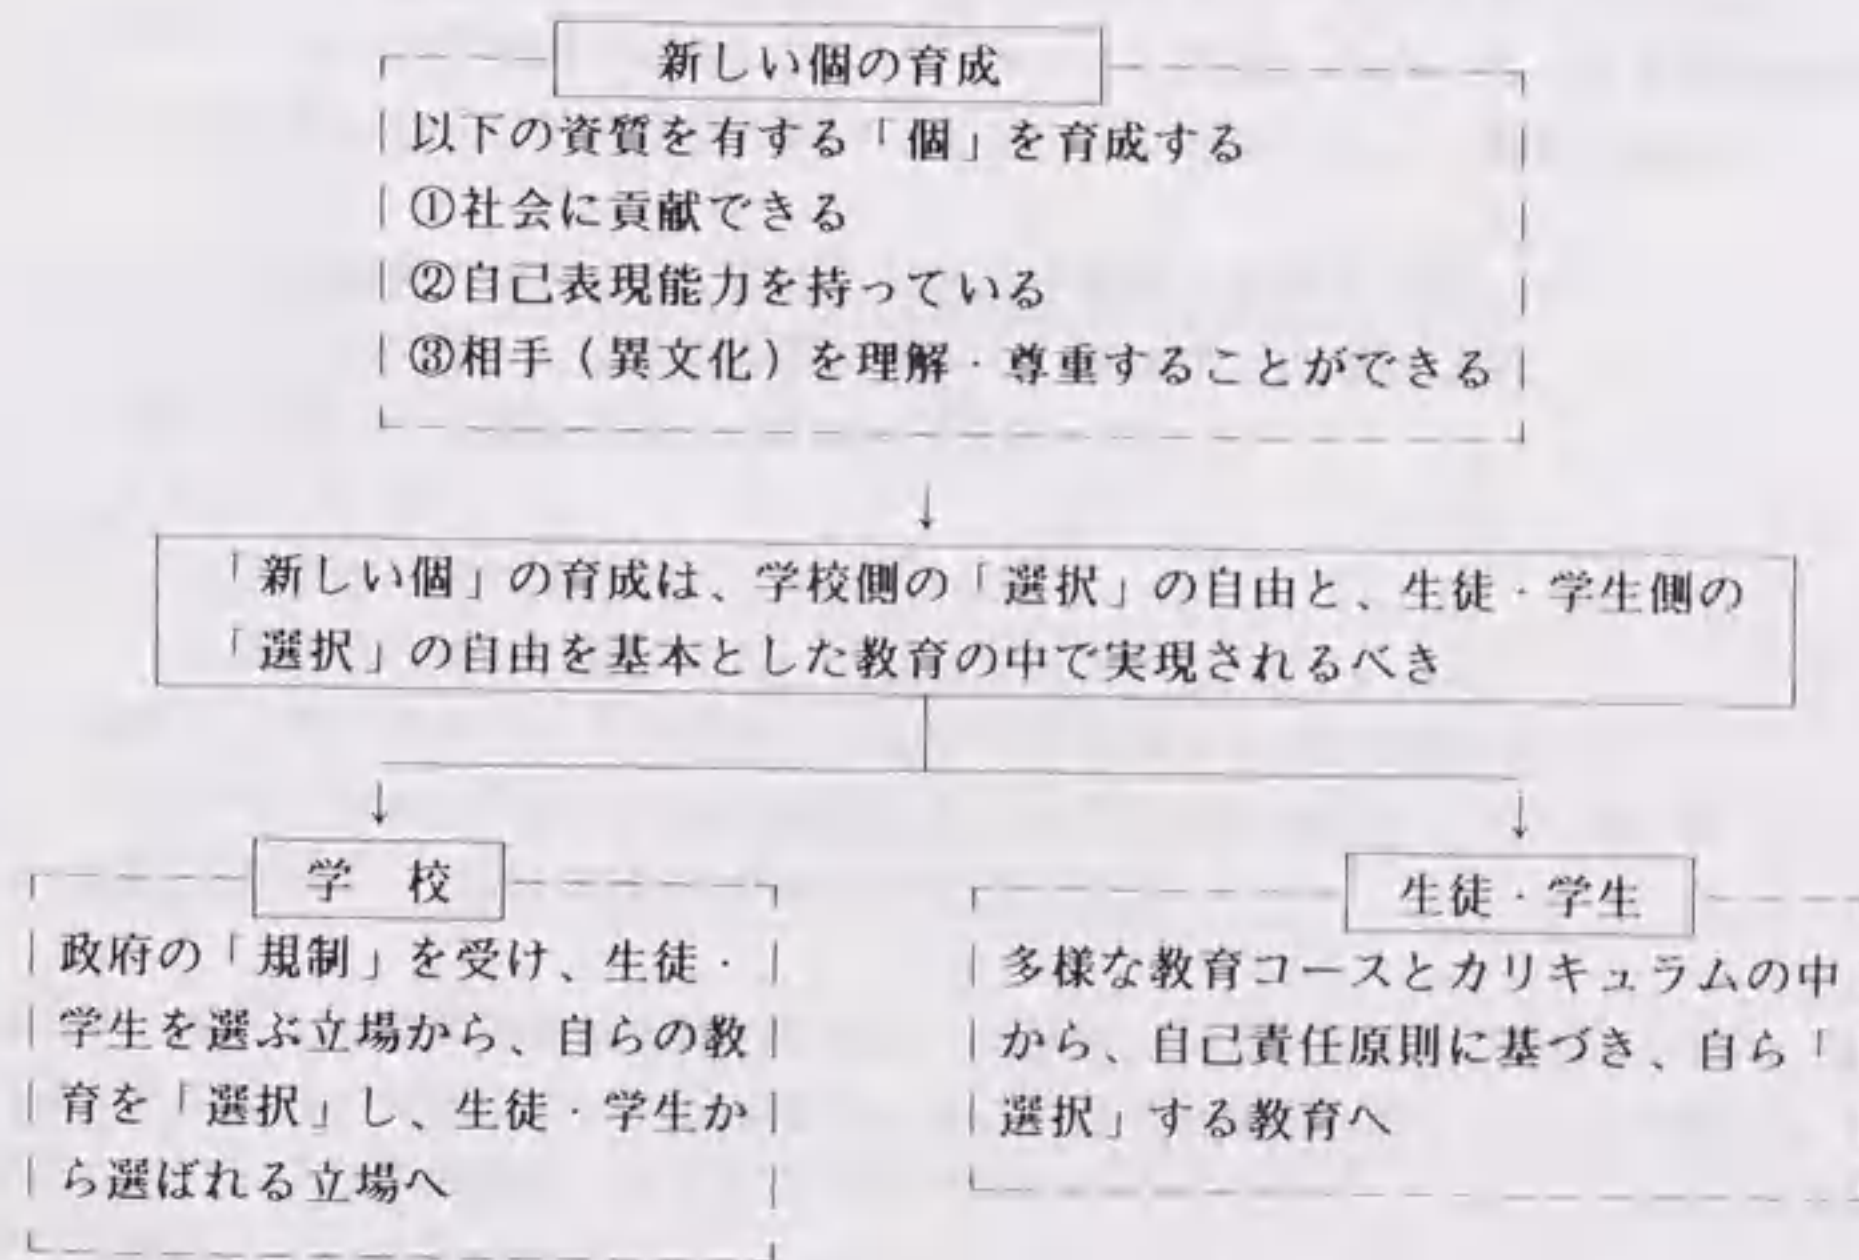 新しい個の育成
以下の資質を有する「個」を育成する
①社会に貢献できる
②自己表現能力を持っている
③相手（異文化）を理解・尊重することができる
↓
「新しい個」の育成は、学校側の「選択」の自由と、生徒・学生側の
「選択」の自由を基本とした教育の中で実現されるべき
↓
↓
学　校
政府の「規制」を受け、生徒・
学生を選ぶ立場から、自らの教
育を「選択」し、生徒・学生か
ら選ばれる立場へ
生徒・学生
多様な教育コースとカリキュラムの中
から、自己責任原則に基づき、自ら「
選択」する教育へ